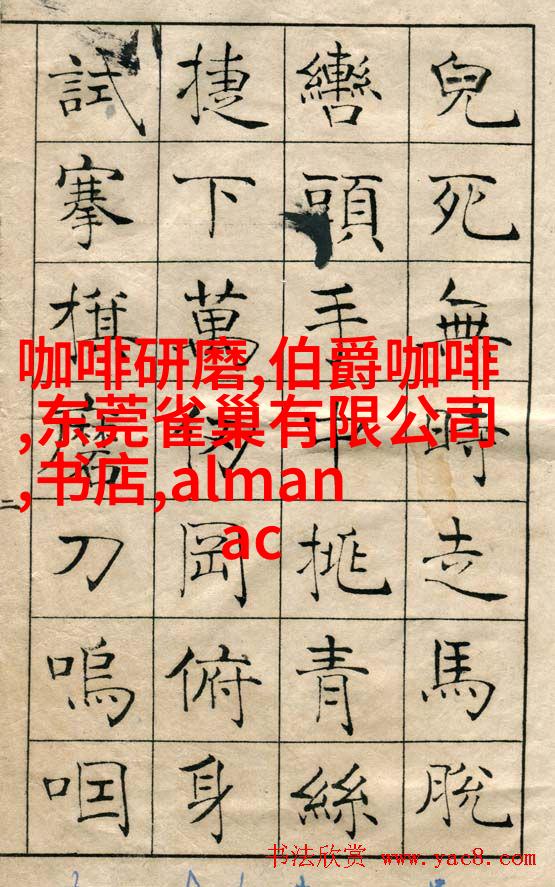 兒死無時走馬脫
轡頭手中挑青絲
捷下萬仞岡俯身
試搴旗刀嗚咽
咖啡研磨,伯爵咖啡
,东莞雀巢有限公司
,书店,alman
ac
书法欣赏 www.yac8.com